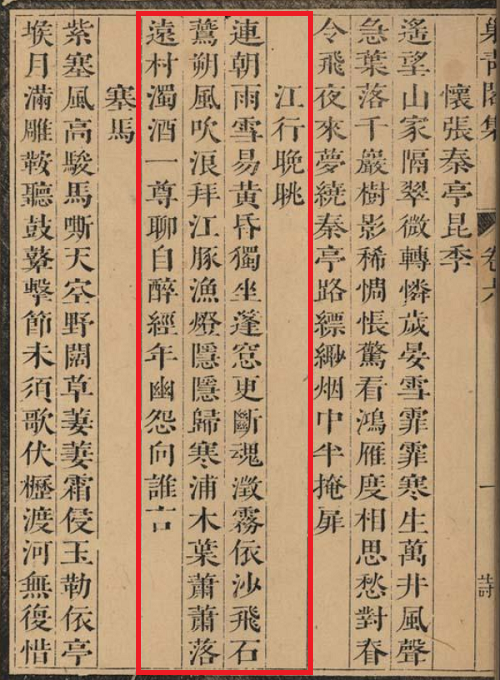 集 卷六 一 詩
懷張秦亭昆季
遙望山家隔翠微轉憐歲晏雪霏霏寒生萬井風聲
急葉落千巖樹影稀惆悵驚看鴻雁度相思愁對脊
令飛夜來夢繞秦亭路縹緲烟中半掩扉
江行晚眺
連朝雨雪易黃昏獨坐蓬窓更斷魂澂霧依沙飛石
鷰朔風吹浪拜江豚漁燈隱隱歸寒浦木葉蕭蕭落
遠村濁酒一尊聊自醉經年幽怨向誰言
塞馬
紫塞風高駿馬嘶天空野闊草萋萋霜侵玉勒依亭
堠月滿雕鞍聽鼓鼙擊節未須歌伏櫪渡河無復惜